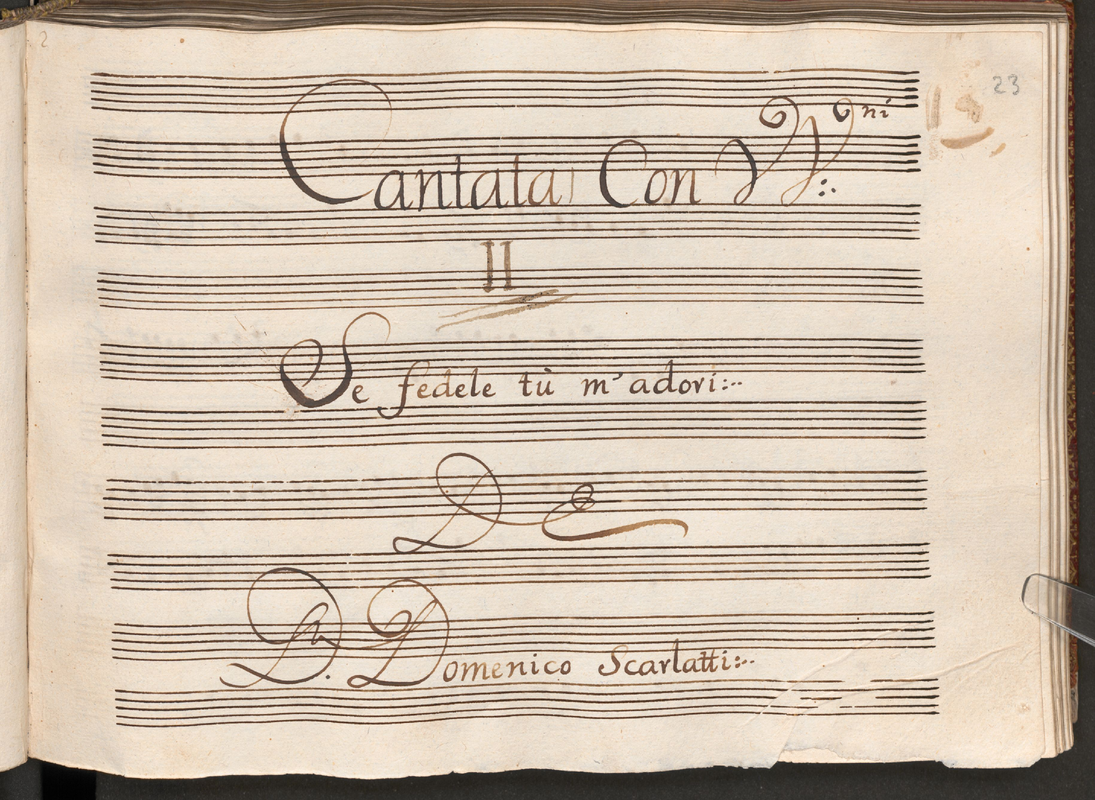 2
23
Cantata Con VV.ni:.
II
Se fedele tù m'adori:..
De
D. Domenico Scarlatti:..